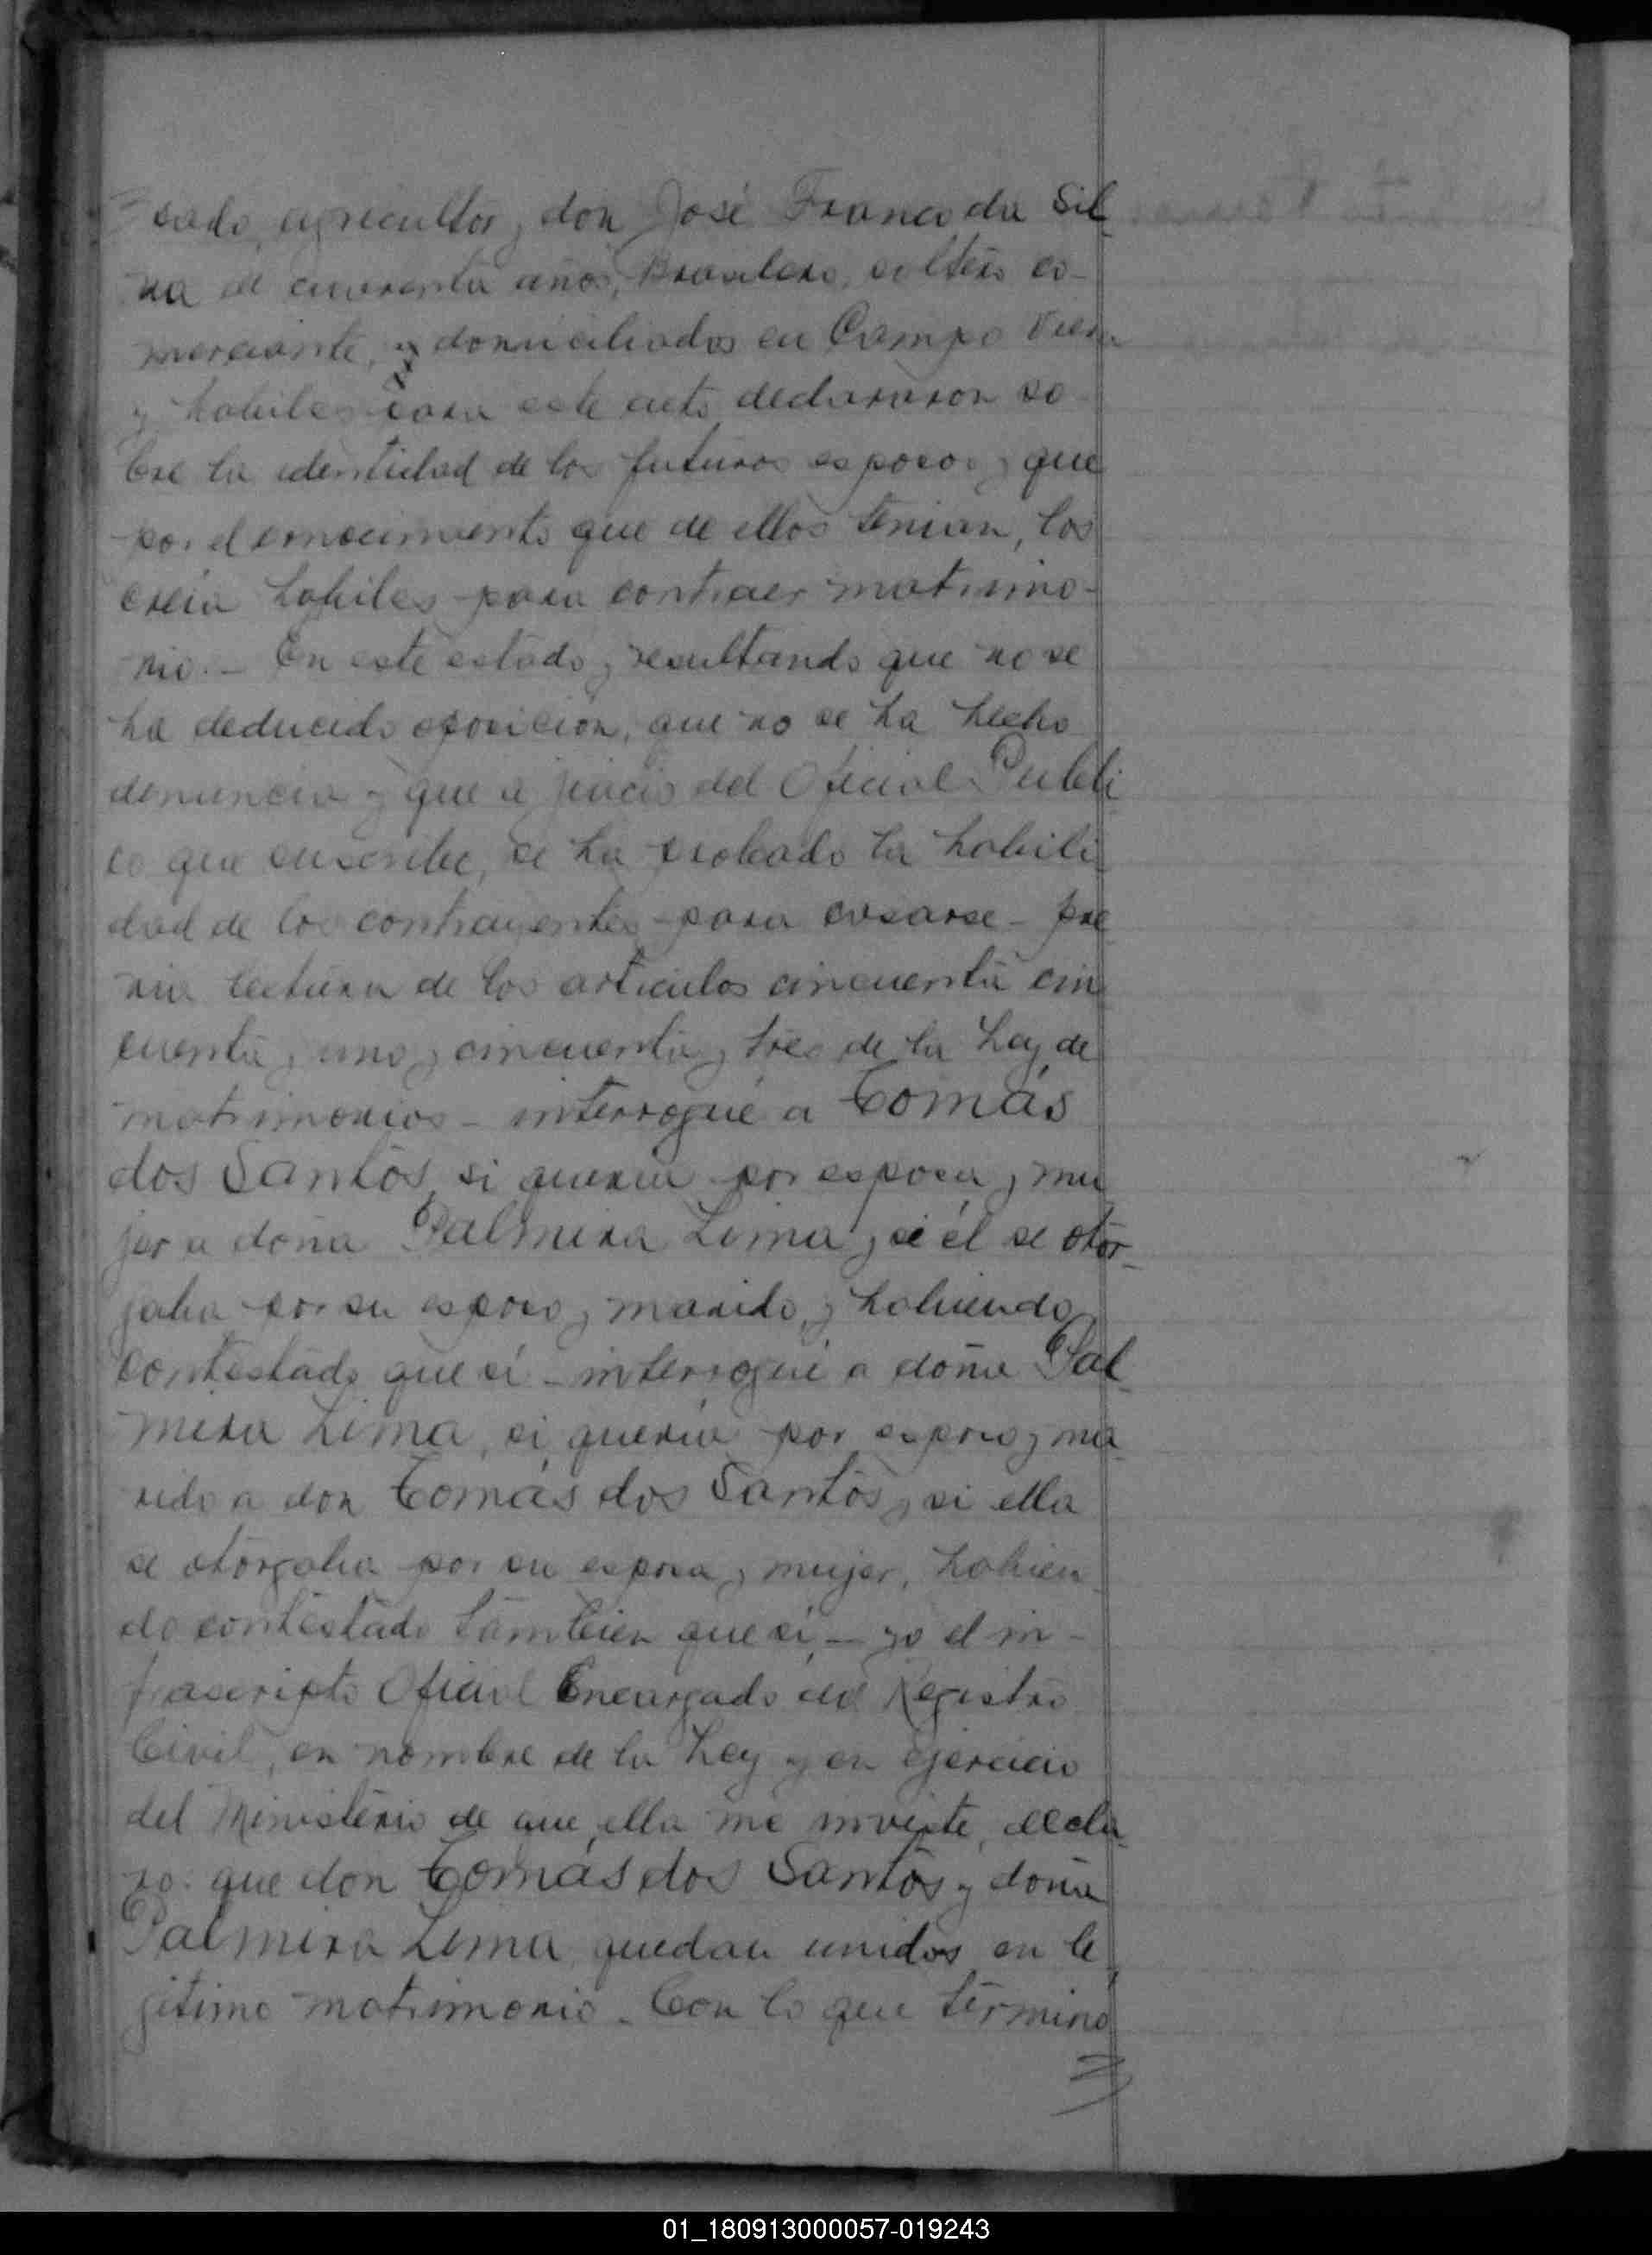 sado, agricultor, y don José Franco da Sil-
va de cuarenta años, Brasilero, soltero co-
merciante, y domiciliados en Campo Viera
y habiles para este acto declararon so-
bre la identidad de los futuros esposos y que
por el conocimiento que de ellos tenian, los
creia habiles para contraer matrimo-
nio.- En este estado y resultando que no se
ha deducido oposicion, que no se ha hecho
denuncia y que a juicio del Oficial Publi
co que suscribe, se ha probado la habili
dad de los contrayentes para casarse - pre
via lectura de los articulos cincuenta cin
cuenta y uno y cincuenta y tres de la Ley de
matrimonios - interrogué a Tomás
dos Santos, si queria por esposa y mu
jer a doña Palmira Lima y si él se otor-
gaba por su esposo y marido, y habiendo
contestado que sí - interrogué a doña Pal-
mira Lima, si queria por esposo y ma
rido a don Tomás dos Santos y si ella
se otorgaba por su esposa y mujer, habien
do contestado tambien que sí, - yo el in-
frascripto Oficial Encargado del Registro
Civil, en nombre de la Ley y en ejercicio
del Ministerio de que ella me inviste, decla
ro: que don Tomás dos Santos y doña
Palmira Lima quedan unidos en le
gitimo matrimonio. Con lo que terminó
01_180913000057-019243